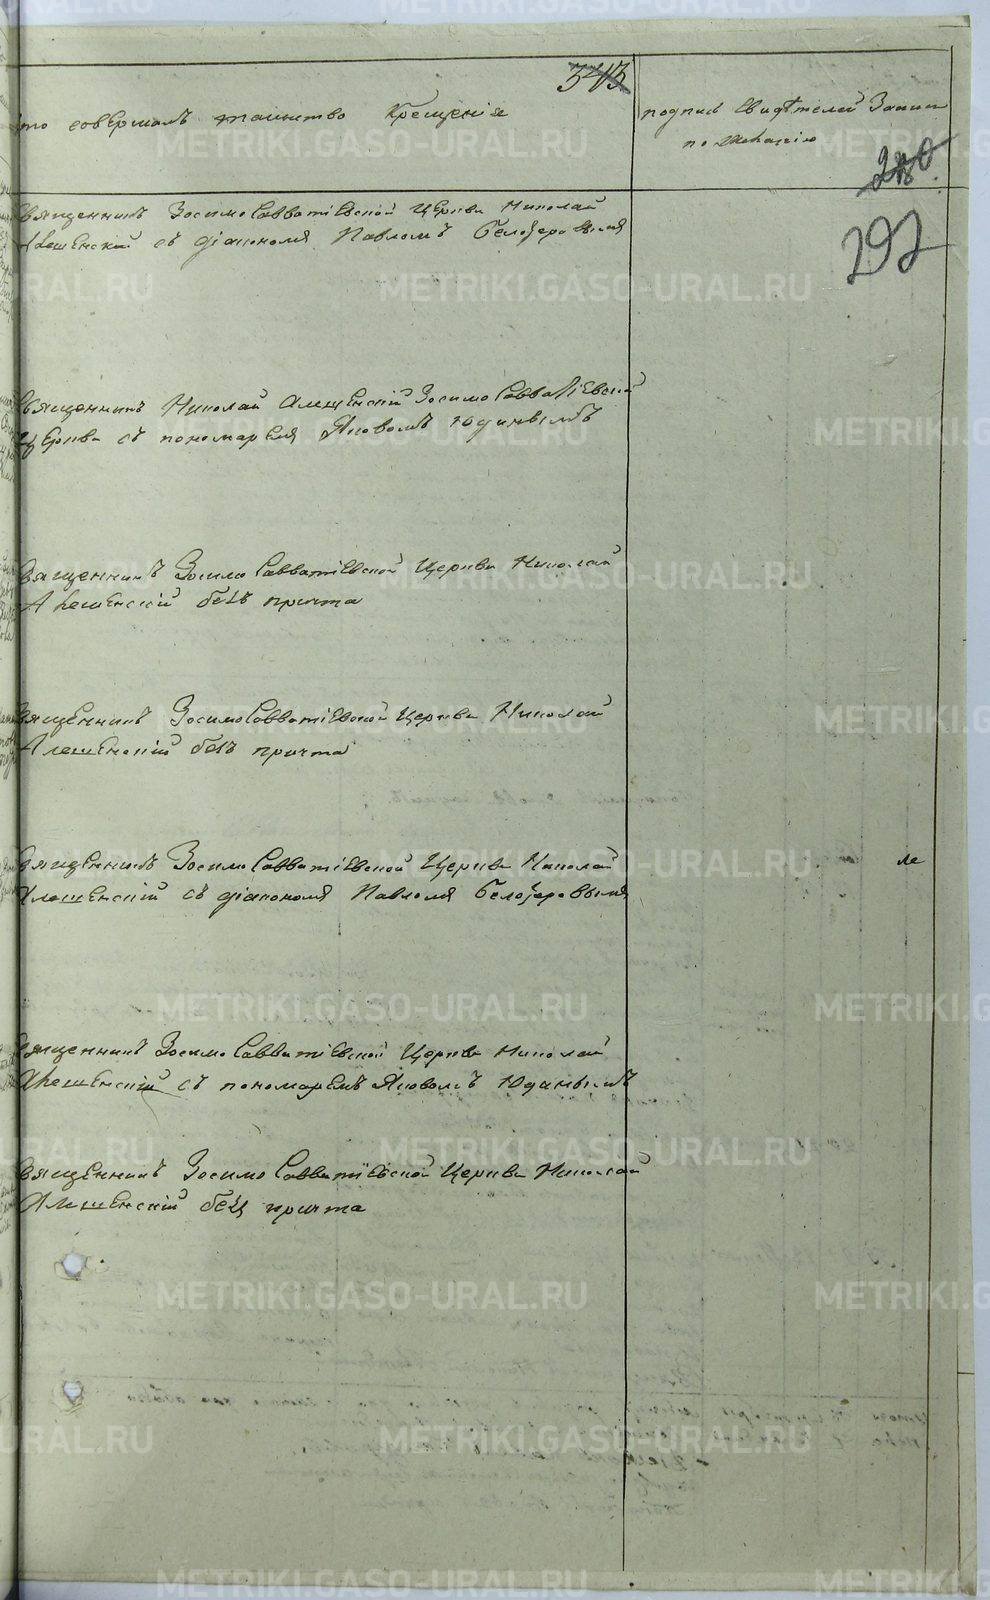 343
то совершалъ таинство Крещенія
подпись Свидѣтелей Записи
по желанію
280
292
Священникъ Зосимо Савватіевской Церкви Николай
Алешенскій съ діакономъ Павломъ Белозеровымъ
Священникъ Николай Алешенскій Зосимо Савватіевской
Церкви съ пономаремъ Яковомъ Юдинымъ
Священникъ Зосимо Савватіевской Церкви Николай
Алешенскій безъ причта
Священникъ Зосимо Савватіевской Церкви Николай
Алешенскій безъ причта
Священникъ Зосимо Савватіевской Церкви Николай
Алешенскій съ діакономъ Павломъ Белозеровымъ
Священникъ Зосимо Савватіевской Церкви Николай
Алешенскій съ пономаремъ Яковомъ Юдинымъ
Священникъ Зосимо Савватіевской Церкви Николай
Алешенскій безъ причта
METRIKI.GASO-URAL.RU